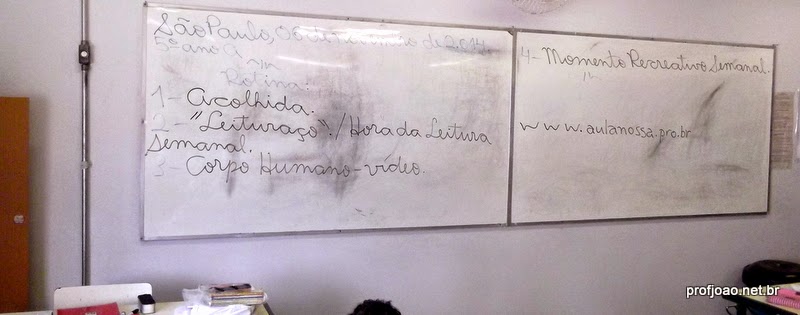 São Paulo, 06 de novembro de 2014.
5º ano A
Rotina:
1- Acolhida.
2- "Leituraço"./Hora da Leitura
Semanal.
3- Corpo Humano-vídeo.
4- Momento Recreativo Semanal.
www.aulanossa.pro.br
profjoao.net.br